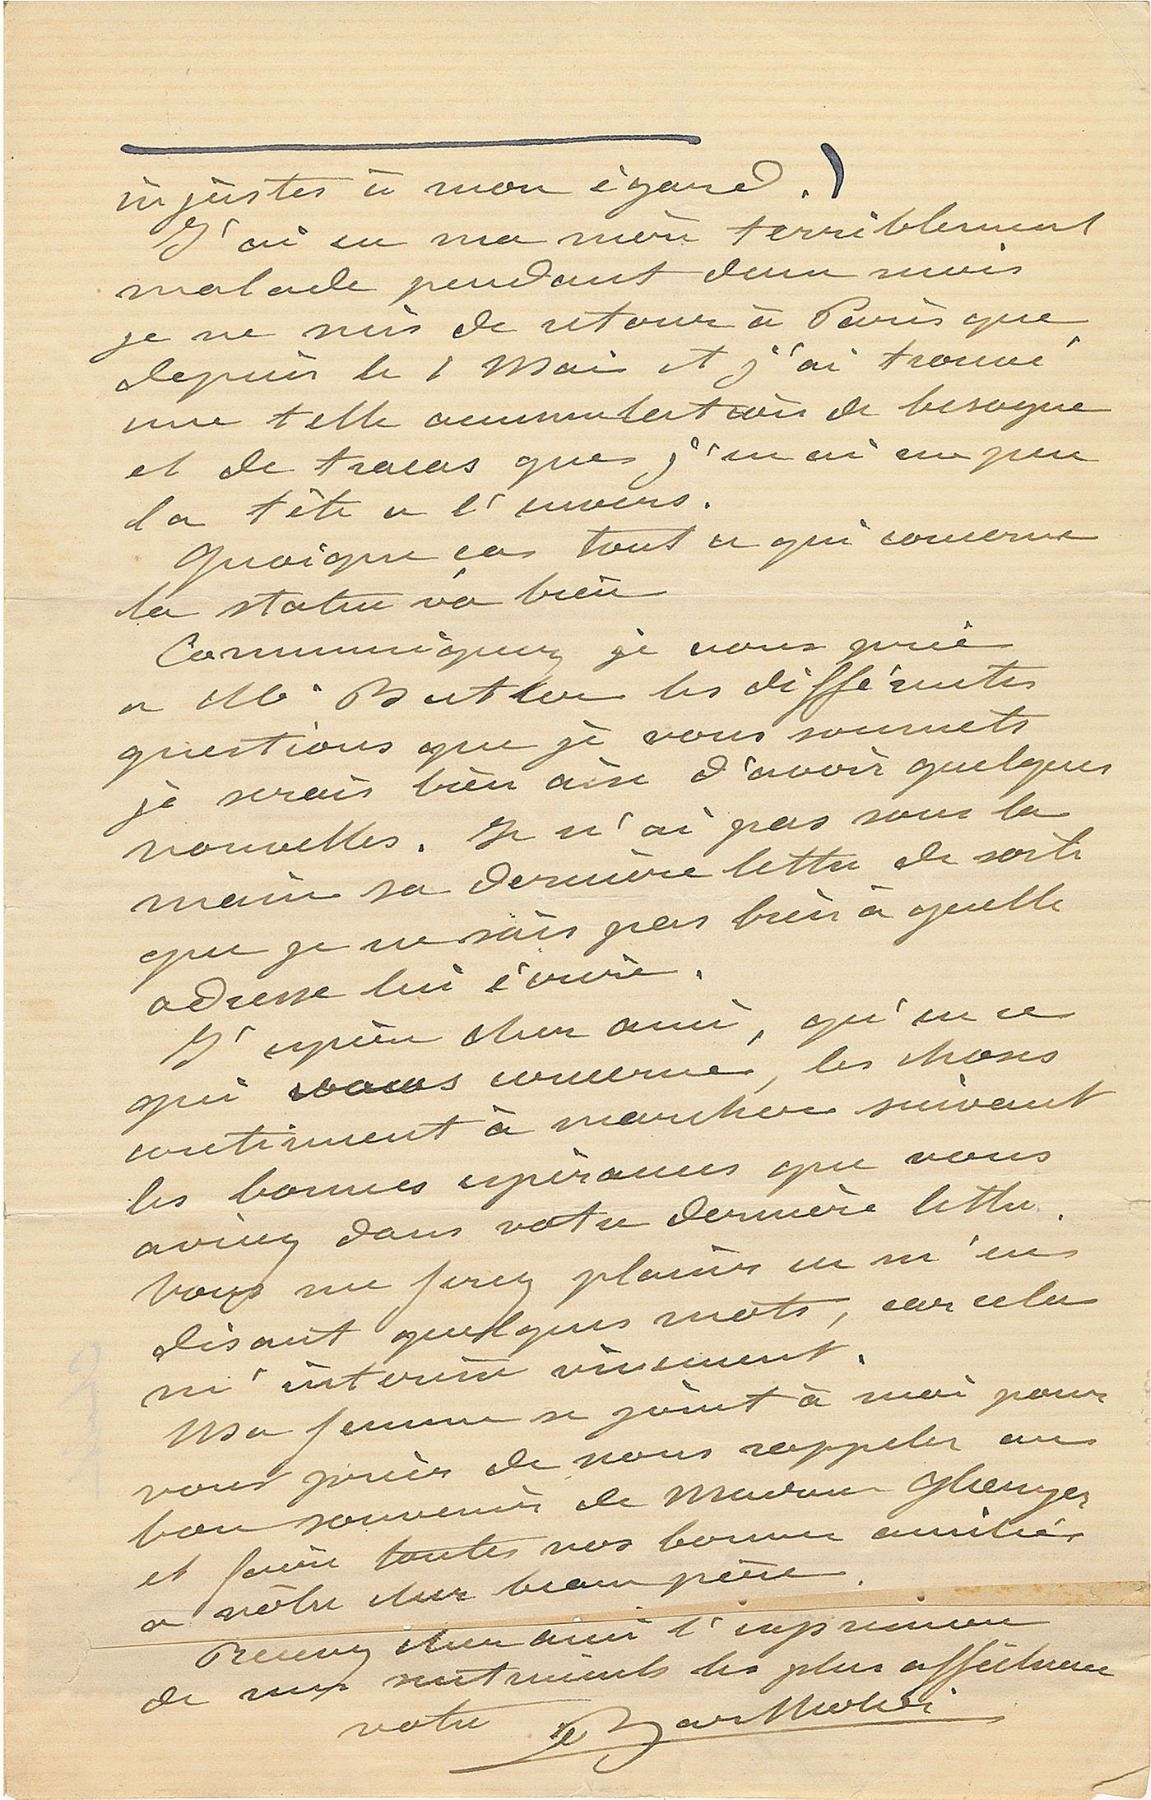 injustes à mon égard.)
J'ai eu ma mère terriblement
malade pendant deux mois
je ne suis de retour à Paris que
depuis le 1 Mai et j'ai trouvé
une telle accumulation de besogne
et de tracas que j'en ai un peu
la tête a l'envers.
Quoique cas tout ce qui concerne
la statue va bien
Communiquez je vous prie
a Mr Butler les différentes
questions que je vous soumets
je serais bien aise d'avoir quelques
nouvelles. Je n'ai pas sous la
main sa dernière lettre de sorte
que je ne sais pas bien à quelle
adresse lui écrire.
J'espère cher ami, qu'en ce
qui vous concerne, les choses
continuent à marcher suivant
les bonnes espérances que vous
aviez dans votre dernière lettre.
Vous me ferez plaisir en m'en
disant quelques mots, car cela
m'intéresse vivement.
Ma femme se joint à moi pour
vous prier de nous rappeler au
bon souvenir de Madame Glaenzer
et faire toutes nos bonnes amitiés
a votre cher beau père.
Recevez cher ami l'expression
de mes sentiments les plus affectueux
votre Bartholdi